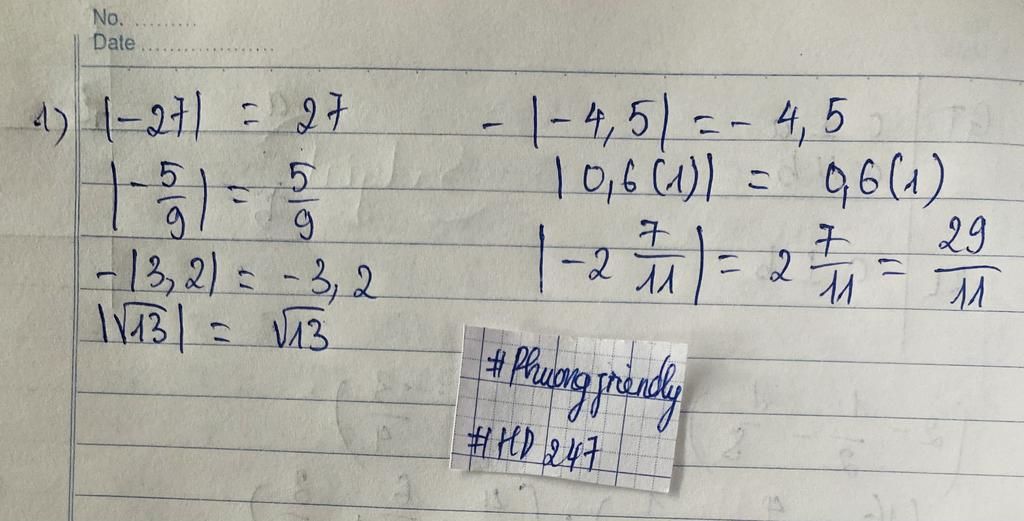 No. ............
Date ........................
1) |-27| = 27
|-5/9| = 5/9
-|3,2| = -3,2
|√13| = √13
-|-4,5| = -4,5
|0,6(1)| = 0,6(1)
|-2 7/11| = 2 7/11 = 29/11
#Phuong friendly
#HD 247